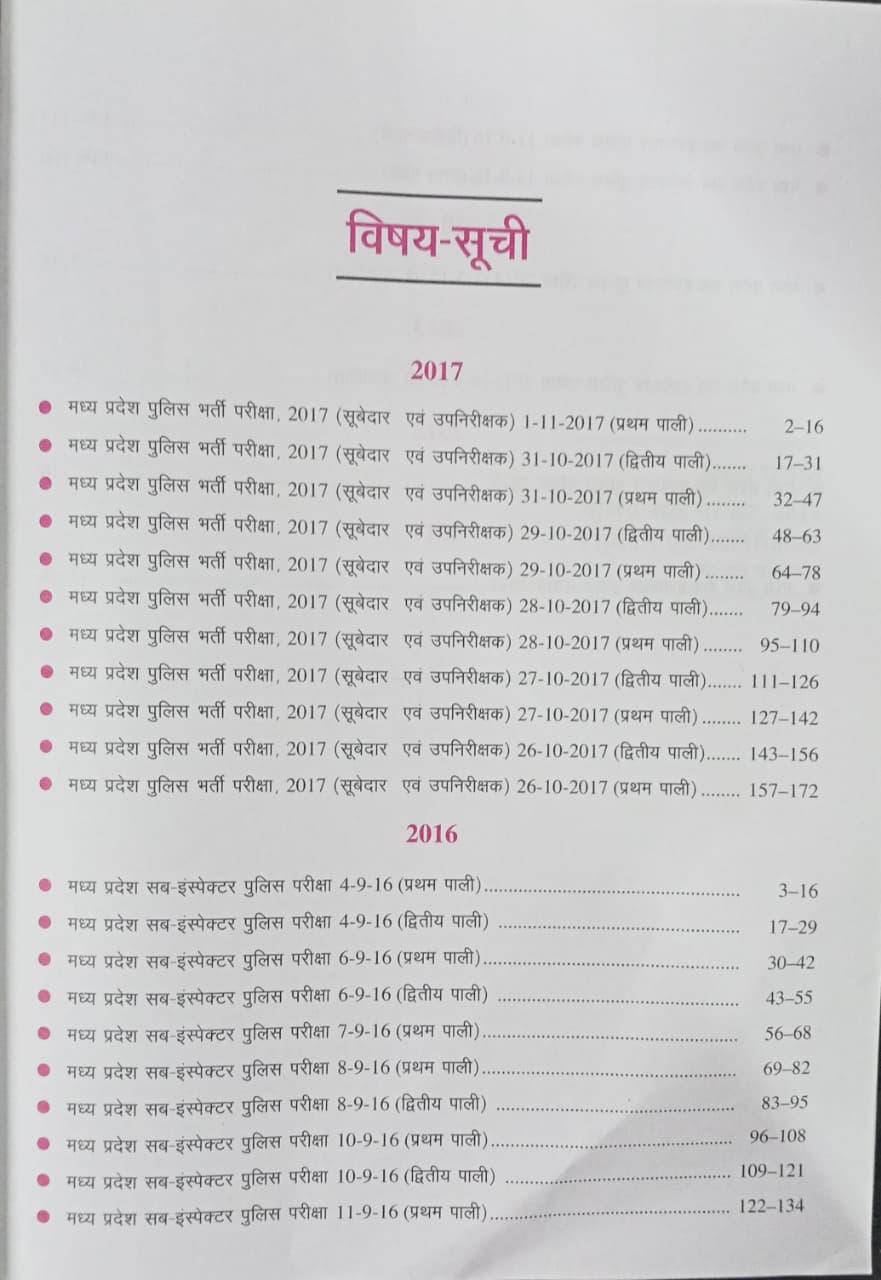 विषय-सूची
2017
● मध्य प्रदेश पुलिस भर्ती परीक्षा, 2017 (सूबेदार एवं उपनिरीक्षक) 1-11-2017 (प्रथम पाली) .......... 2–16
● मध्य प्रदेश पुलिस भर्ती परीक्षा, 2017 (सूबेदार एवं उपनिरीक्षक) 31-10-2017 (द्वितीय पाली)....... 17–31
● मध्य प्रदेश पुलिस भर्ती परीक्षा, 2017 (सूबेदार एवं उपनिरीक्षक) 31-10-2017 (प्रथम पाली) ........ 32–47
● मध्य प्रदेश पुलिस भर्ती परीक्षा, 2017 (सूबेदार एवं उपनिरीक्षक) 29-10-2017 (द्वितीय पाली)....... 48–63
● मध्य प्रदेश पुलिस भर्ती परीक्षा, 2017 (सूबेदार एवं उपनिरीक्षक) 29-10-2017 (प्रथम पाली) ........ 64–78
● मध्य प्रदेश पुलिस भर्ती परीक्षा, 2017 (सूबेदार एवं उपनिरीक्षक) 28-10-2017 (द्वितीय पाली)....... 79–94
● मध्य प्रदेश पुलिस भर्ती परीक्षा, 2017 (सूबेदार एवं उपनिरीक्षक) 28-10-2017 (प्रथम पाली) ........ 95–110
● मध्य प्रदेश पुलिस भर्ती परीक्षा, 2017 (सूबेदार एवं उपनिरीक्षक) 27-10-2017 (द्वितीय पाली)....... 111–126
● मध्य प्रदेश पुलिस भर्ती परीक्षा, 2017 (सूबेदार एवं उपनिरीक्षक) 27-10-2017 (प्रथम पाली) ........ 127–142
● मध्य प्रदेश पुलिस भर्ती परीक्षा, 2017 (सूबेदार एवं उपनिरीक्षक) 26-10-2017 (द्वितीय पाली)....... 143–156
● मध्य प्रदेश पुलिस भर्ती परीक्षा, 2017 (सूबेदार एवं उपनिरीक्षक) 26-10-2017 (प्रथम पाली) ........ 157–172
2016
● मध्य प्रदेश सब-इंस्पेक्टर पुलिस परीक्षा 4-9-16 (प्रथम पाली).................................................. 3–16
● मध्य प्रदेश सब-इंस्पेक्टर पुलिस परीक्षा 4-9-16 (द्वितीय पाली) ............................................... 17–29
● मध्य प्रदेश सब-इंस्पेक्टर पुलिस परीक्षा 6-9-16 (प्रथम पाली).................................................. 30–42
● मध्य प्रदेश सब-इंस्पेक्टर पुलिस परीक्षा 6-9-16 (द्वितीय पाली) ............................................... 43–55
● मध्य प्रदेश सब-इंस्पेक्टर पुलिस परीक्षा 7-9-16 (प्रथम पाली).................................................. 56–68
● मध्य प्रदेश सब-इंस्पेक्टर पुलिस परीक्षा 8-9-16 (प्रथम पाली).................................................. 69–82
● मध्य प्रदेश सब-इंस्पेक्टर पुलिस परीक्षा 8-9-16 (द्वितीय पाली) ............................................... 83–95
● मध्य प्रदेश सब-इंस्पेक्टर पुलिस परीक्षा 10-9-16 (प्रथम पाली)................................................ 96–108
● मध्य प्रदेश सब-इंस्पेक्टर पुलिस परीक्षा 10-9-16 (द्वितीय पाली) ............................................. 109–121
● मध्य प्रदेश सब-इंस्पेक्टर पुलिस परीक्षा 11-9-16 (प्रथम पाली)................................................ 122–134